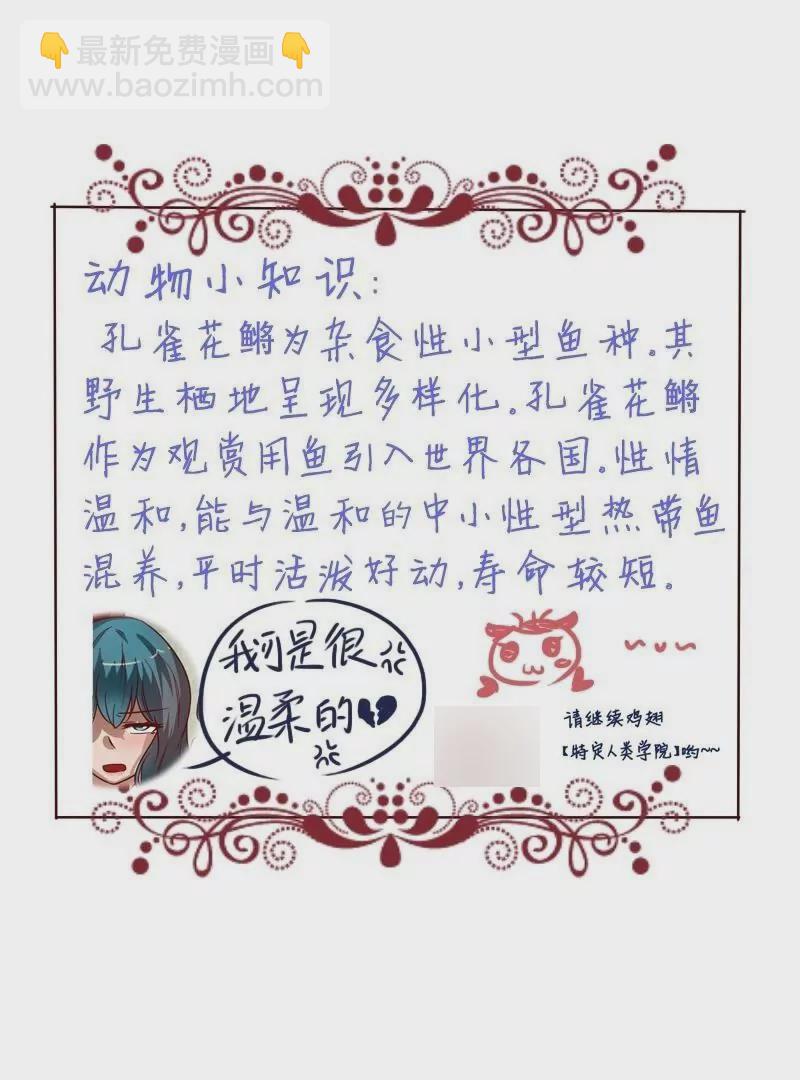 👇最新免费漫画👇
www.baozimh.com
动物小知识:
孔雀花鳉为杂食性小型鱼种。其
野生栖地呈现多样化。孔雀花鳉
作为观赏用鱼引入世界各国。性情
温和,能与温和的中小性型热带鱼
混养,平时活泼好动,寿命较短。
我可是很
温柔的
请继续鸡翅
【特定人类学院】哟~~